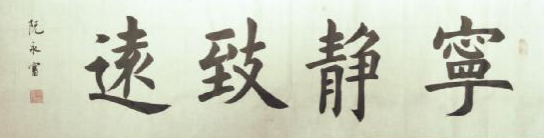 寧静致遠
阮永富